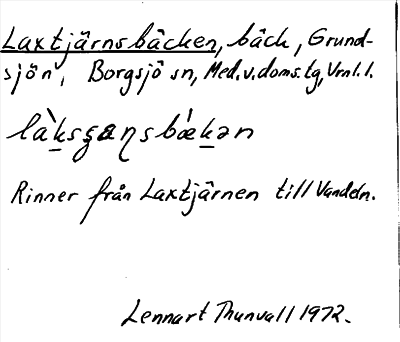 Laxtjärnsbäcken, bäck, Grund-
sjön, Borgsjö sn, Med.v.doms.tg, Vrnl. l.
là̱ksʂaɳsbæ̀kən
Rinner från Laxtjärnen till Vandeln.
Lennart Thunvall 1972.